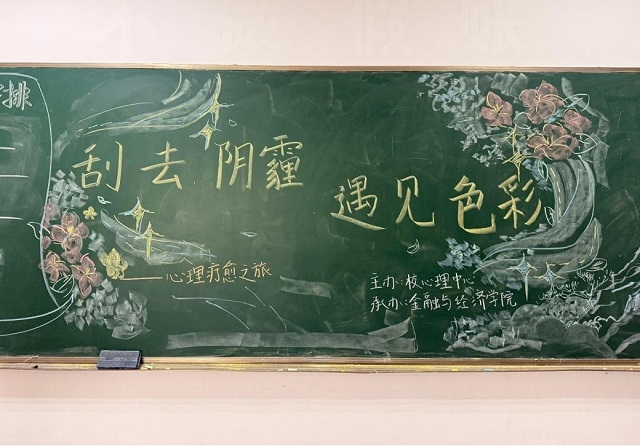 排
刮去阴霾
遇见色彩
——心理疗愈之旅
主办：校心理中心
承办：金融与经济学院